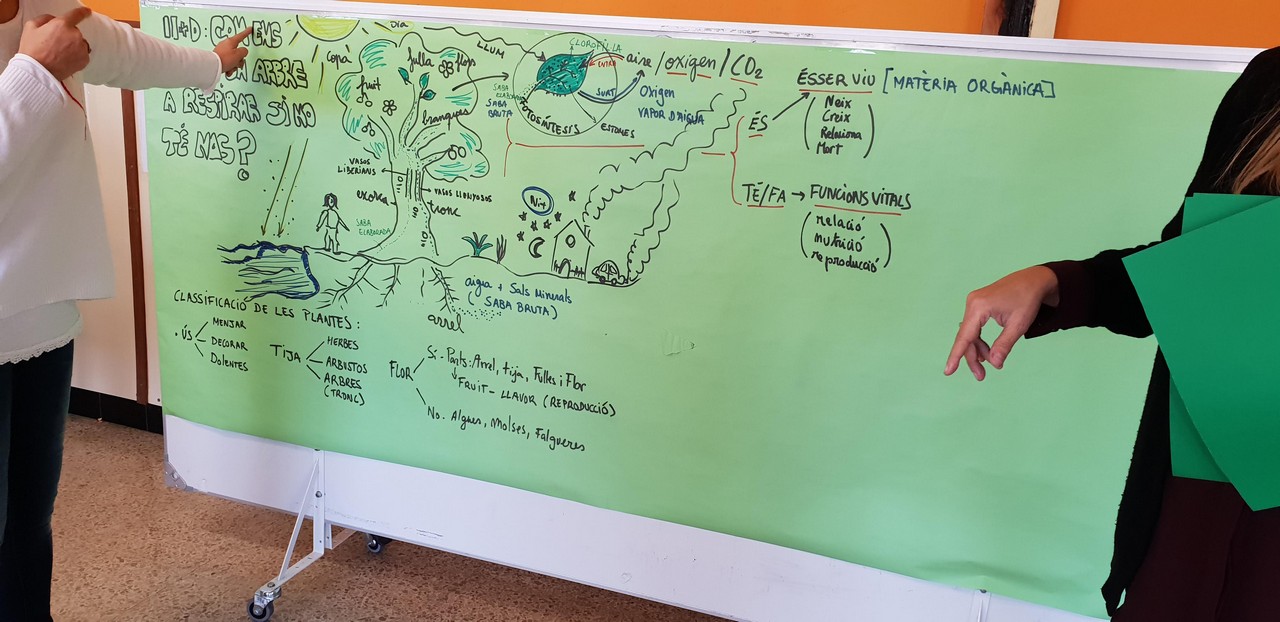 II+D: COM ENS
ARBRE
A RESPIRAR SI NO
TÉ NAS?
Dia
LLUM
copa
fulla
flor
fruit
branques
CLOROFIL·LA
ENTRA
SURT
SABA
ELABORADA
SABA
BRUTA
FOTOSÍNTESIS
ESTOMES
aire/oxigen/CO2
Oxigen
VAPOR D'AIGUA
VASOS
LIBERIANS
VASOS LLENYOSOS
escorça
tronc
SABA
ELABORADA
Nit
aigua + Sals Minerals
(SABA BRUTA)
arrel
ÉS
ÉSSER VIU [MATÈRIA ORGÀNICA]
(Neix
Creix
Relaciona
Mort)
TÉ/FA → FUNCIONS VITALS
(relació
nutrició
reproducció)
CLASSIFICACIÓ DE LES PLANTES:
· ÚS
MENJAR
DECORAR
Dolentes
TIJA
HERBES
ARBUSTOS
ARBRES
(TRONC)
FLOR
Sí - Parts: Arrel, tija, Fulles i Flor
FRUIT - LLAVOR (REPRODUCCIÓ)
No. Algues, Molses, Falgueres